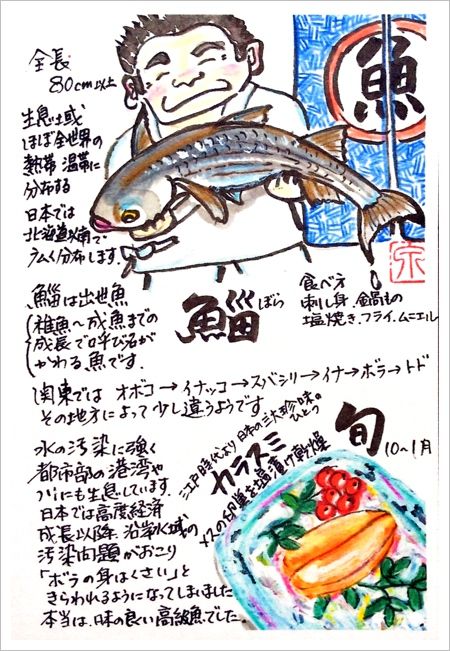 全長
80cm以上
魚
生息域
ほぼ全世界の
熱帯 温帯に
分布する
日本では
北海道以南で
広く分布します。
鯔 ぼら
食べ方
刺し身、鍋もの
塩焼き、フライ、ムニエル
鯔は出世魚
(稚魚〜成魚までの
成長で呼び名が
かわる魚です。
関東では オボコ→イナッコ→スバシリ→イナ→ボラ→トド
その地方によって少し違うようです。
水の汚染に強く
都市部の港湾や
川にも生息しています。
日本では高度経済
成長以降、沿岸水域の
汚染問題がおこり
「ボラの身はくさい」と
きらわれるようになってしまいました
本当は、味の良い高級魚でした。
江戸時代より 日本の三大珍味。
ひとつ
カラスミ
メスの卵巣を塩漬け乾燥
旬
10〜1月